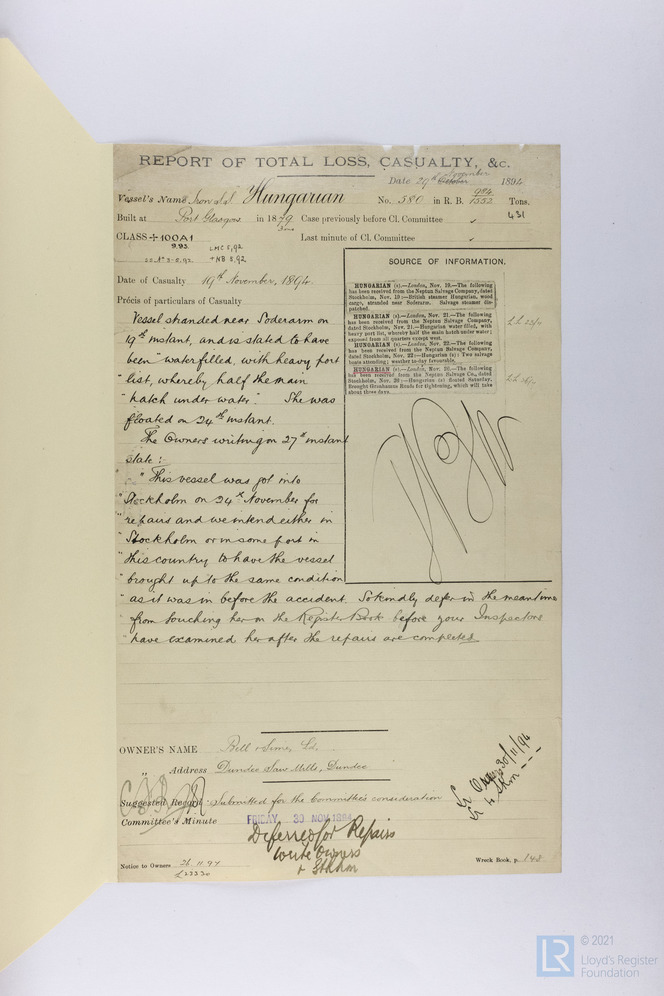 REPORT OF TOTAL LOSS, CASUALTY, &c.
Date 29th November 1894
Vessel's Name Iron s.s. Hungarian No. 580 in R. B. 984 1552 Tons.
431
Built at Port Glasgow in 1879 Case previously before Cl. Committee
CLASS +100A1 Last minute of Cl. Committee
9.93
LMC 5,92
+NB 5,92
Date of Casualty 19th November, 1894.
Précis of particulars of Casualty
Vessel stranded near Soderarm on
19th instant, and is stated to have
been "waterfilled, with heavy port
"list, whereby half the main
"hatch under water." She was
floated on 24th instant.
The Owners writing on 27th instant
state:
"This vessel was got into
"Stockholm on 24th November for
"repairs and we intend either in
"Stockholm or in some port in
"this country to have the vessel
"brought up to the same condition
"as it was in before the accident. So kindly defer in the meantime
"from touching her in the Register Book before your Inspectors
"have examined her after the repairs are completed
SOURCE OF INFORMATION.
HUNGARIAN (s).—London, Nov. 19.—The following
has been received from the Neptun Salvage Company, dated
Stockholm, Nov. 19:—British steamer Hungarian, wood
cargo, stranded near Soderarm. Salvage steamer dis-
patched.
HUNGARIAN (s).—London, Nov. 21.—The following
has been received from the Neptun Salvage Company,
dated Stockholm, Nov. 21.—Hungarian water filled, with
heavy port list, whereby half the main hatch under water;
exposed from all quarters except west.
HUNGARIAN (s).—London, Nov. 22.—The following
has been received from the Neptun Salvage Company,
dated Stockholm, Nov. 22:—Hungarian (s): Two salvage
boats attending; weather to-day favourable.
HUNGARIAN (s).—London, Nov. 26.—The following
has been received from the Neptun Salvage Co., dated
Stockholm, Nov. 26:—Hungarian (s) floated Saturday.
Brought Gronhamns Roads for tightening, which will take
about three days.
OWNER'S NAME Bell & Sime, Ld.
" Address Dundee Saw Mills, Dundee
Suggested Record: Submitted for the Committee's consideration
Committee's Minute FRIDAY 30 NOV 1894
Deferred for Repairs
Write Owners
& Stkhm
30/11/94
Notice to Owners 26.11.94
Wreck Book, p. 148
LR
© 2021
Lloyd's Register
Foundation